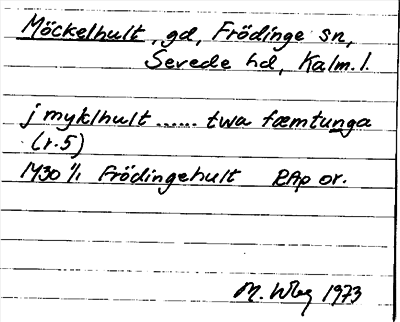 Möckelhult, gd, Frödinge sn,
Sevede hd, Kalm. l.
j myklhult ...... twa fæmtunga
(r. 5)
1430 1/1 Frödingehult RAp or.
M. Wbg 1973